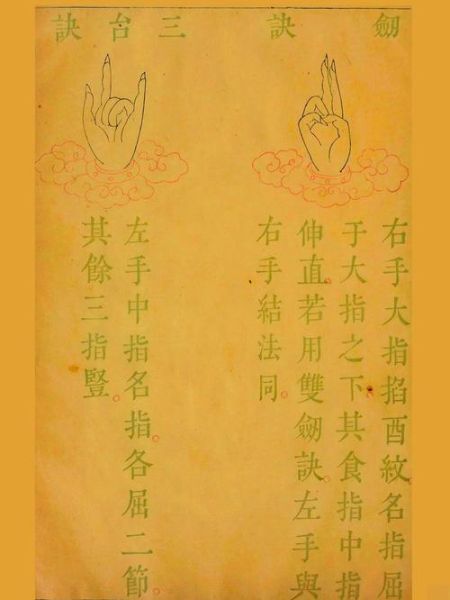 劔訣
右手大指掐酉紋名指屈
于大指之下。其食指中指
伸直。若用雙劔訣。左手與
右手結法同。
三台訣
左手中指名指。各屈二節。
其餘三指豎。